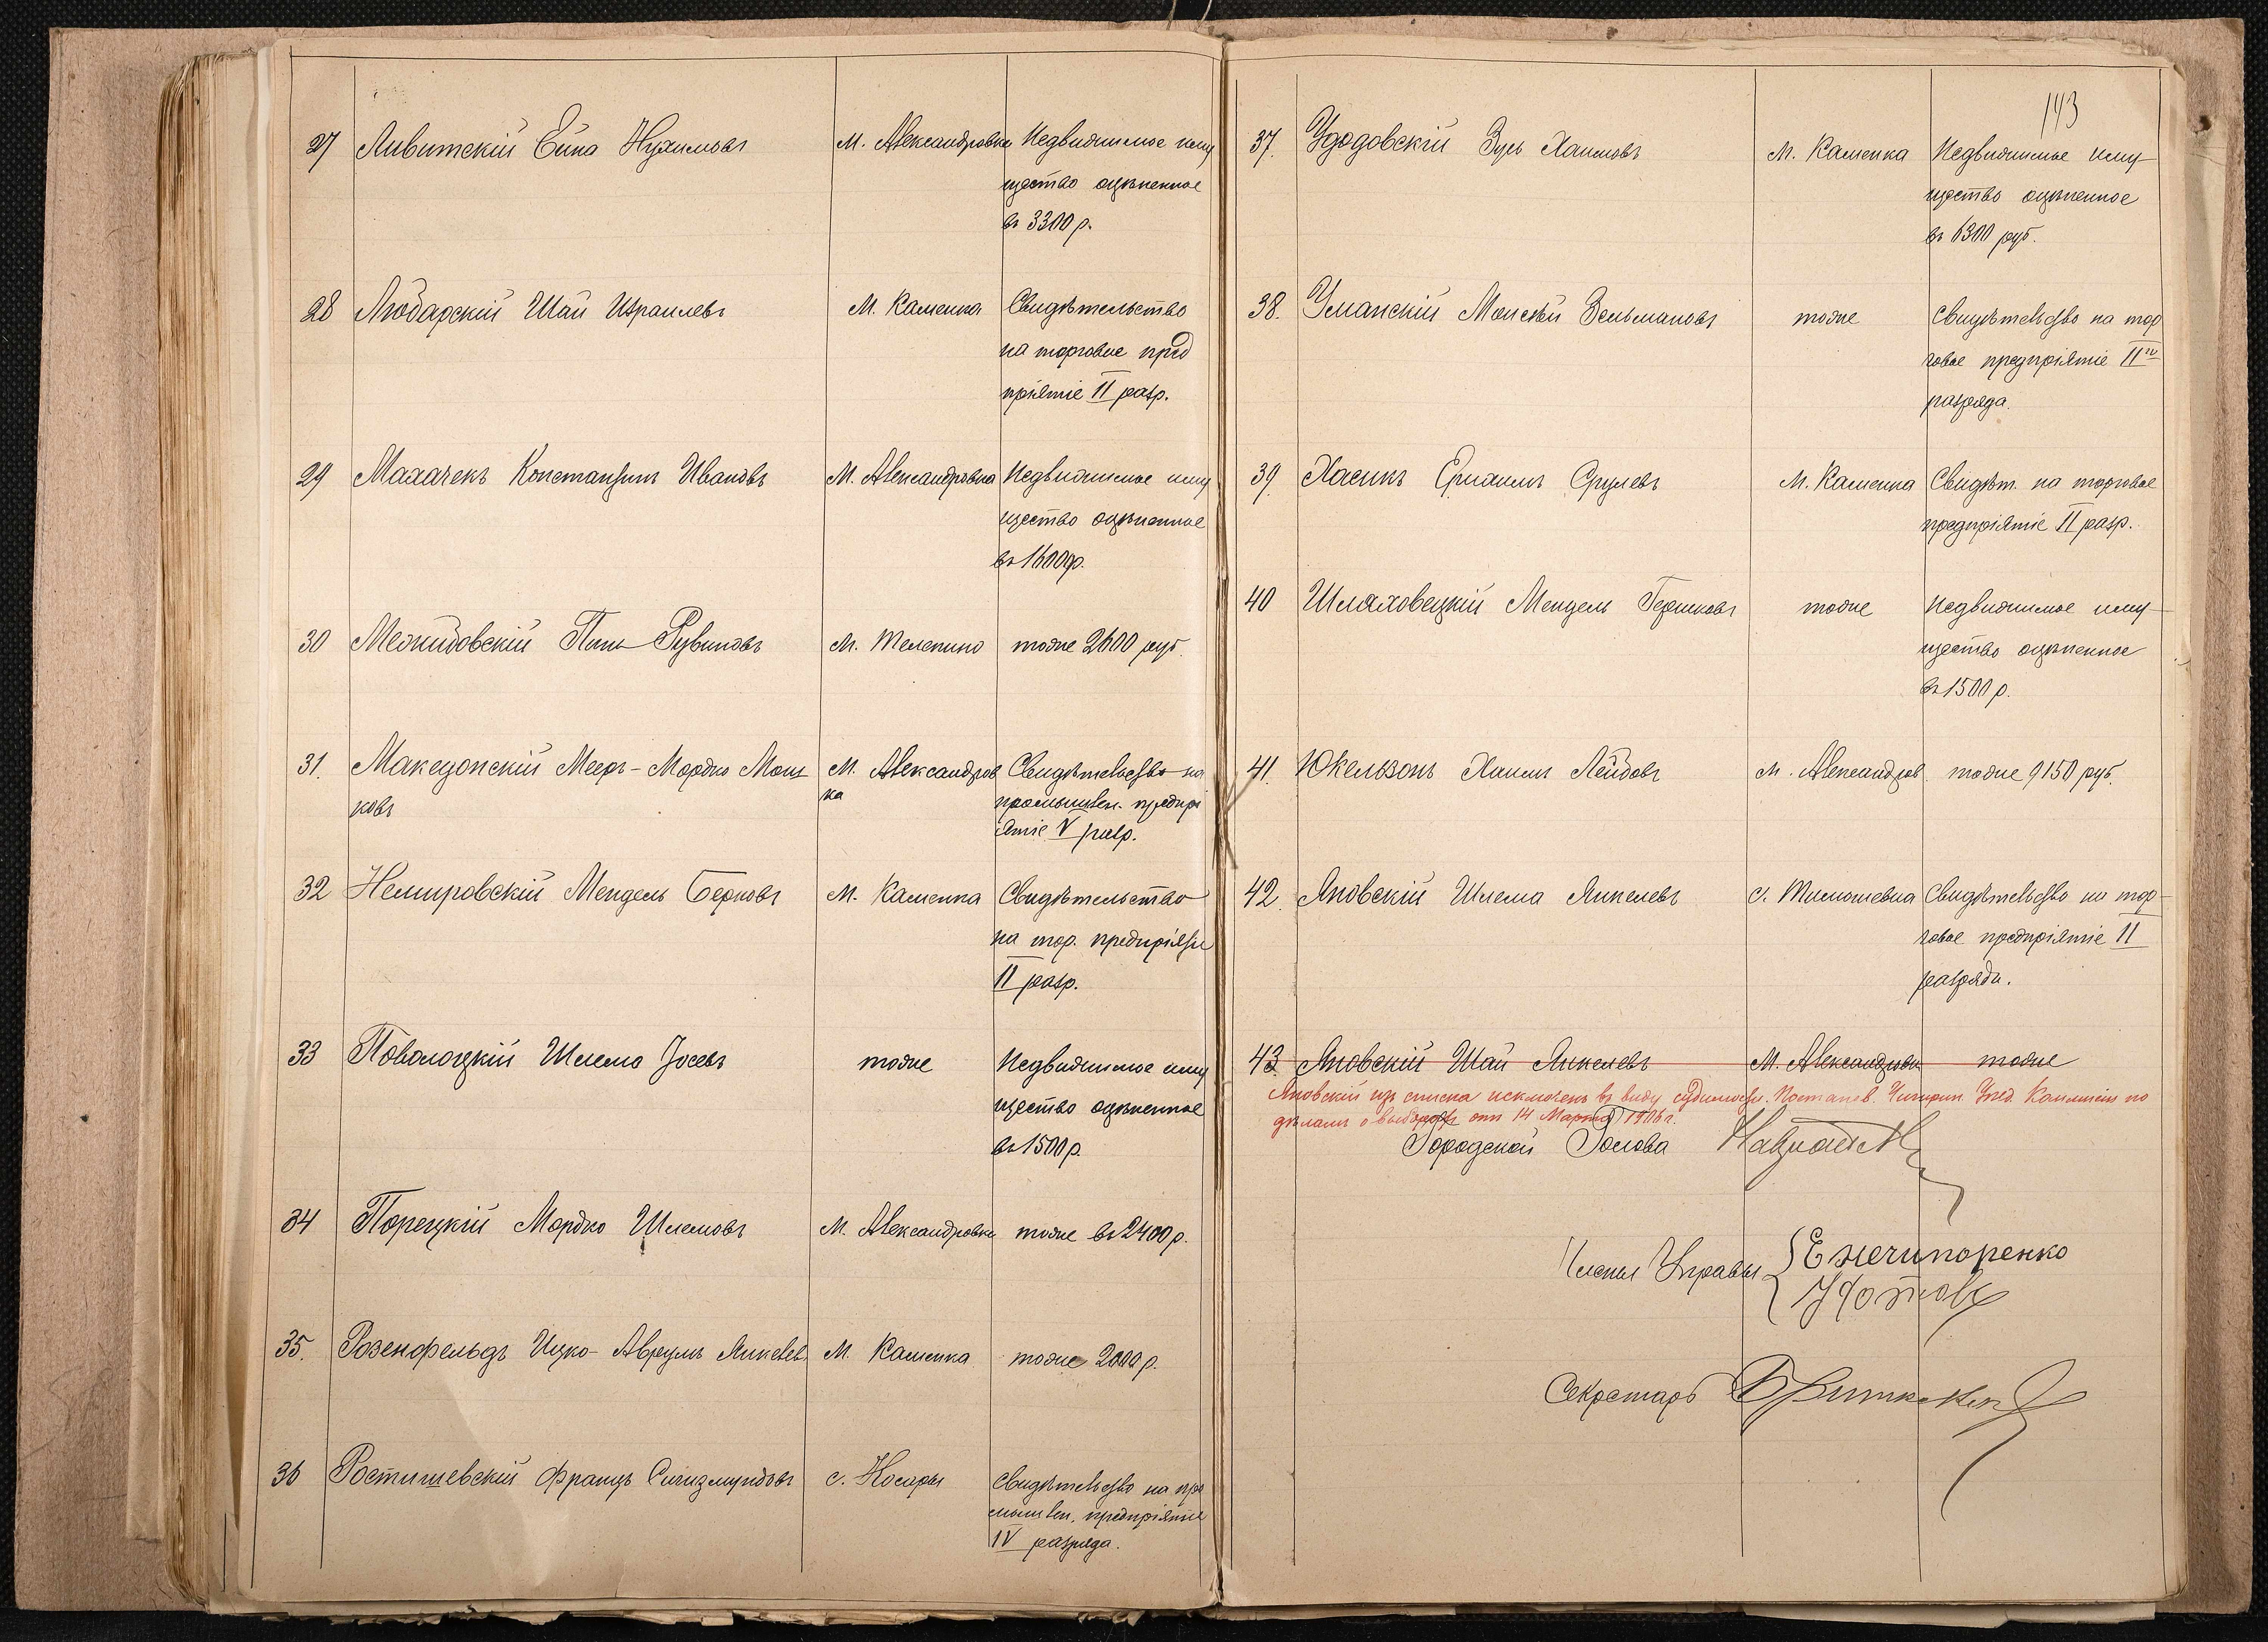 27 Ливитскій Ейна Нухимовъ м. Александровка Недвижимое иму
щество оцѣненное
въ 3300 р.
28 Любарскій Шай Израилевъ м. Каменка Свидѣтельство
на торговое пред
пріятіе II разр.
29 Махачекъ Константинъ Ивановъ м. Александровка Недвижимое иму
щество оцѣненное
въ 1600 р.
30 Межидовскій Рувиновъ м. Телепино тоже 2600 руб.
31. Македонскій Мееръ-Мордко Мош м. Александров Свидѣтельство на
ковъ ка промышлен. предпрі
ятіе V разр.
32 Немировскій Мендель Берковъ м. Каменка Свидѣтельство
на тор. предпріятіе
II разр.
33 Поволоцкій Шлема Іосевъ тоже Недвижимое иму
щество оцѣненное
въ 1500 р.
34 Порецкій Мордко Шлемовъ м. Александровка тоже въ 2400 р.
35. Розенфельдъ Ицко-Аврумъ Янкелев. м. Каменка тоже 2000 р.
36 Ростишевскій Францъ Сигизмундовъ с. Носары Свидѣтельство на про
мышлен. предпріятіе
IV разряда.
143
37. Удодовскій Зусь Хаимовъ м. Каменка Недвижимое иму-
щество оцѣненное
въ 6300 руб.
38. Уманскій Моисей Зельмановъ тоже Свидѣтельство на тор
говое предпріятіе II го
разряда.
39. Хасинъ Ерихимъ Срулевъ м. Каменка Свидѣт. на торговое
предпріятіе II разр.
40 Шляховецкій Мендель Гершковъ тоже Недвижимое иму-
щество оцѣненное
въ 1500 р.
41. Юкельзонъ Хаимъ Лейбовъ м. Александров. тоже 9150 руб.
42. Яновскій Шлема Янкелевъ с. Тимошевка Свидѣтельство на тор-
говое предпріятіе II
разряда.
43. Яновскій Шай Янкелевъ м. Александровка тоже
Яновскій изъ списка исключенъ въ виду судимости. Постанов. Чигирин. Уѣзд. Коммисіи по
дѣламъ о выборахъ отъ 14 Марта 1906 г.
Городской Голова
Члены Управы Е Нечипоренко
Секретарь